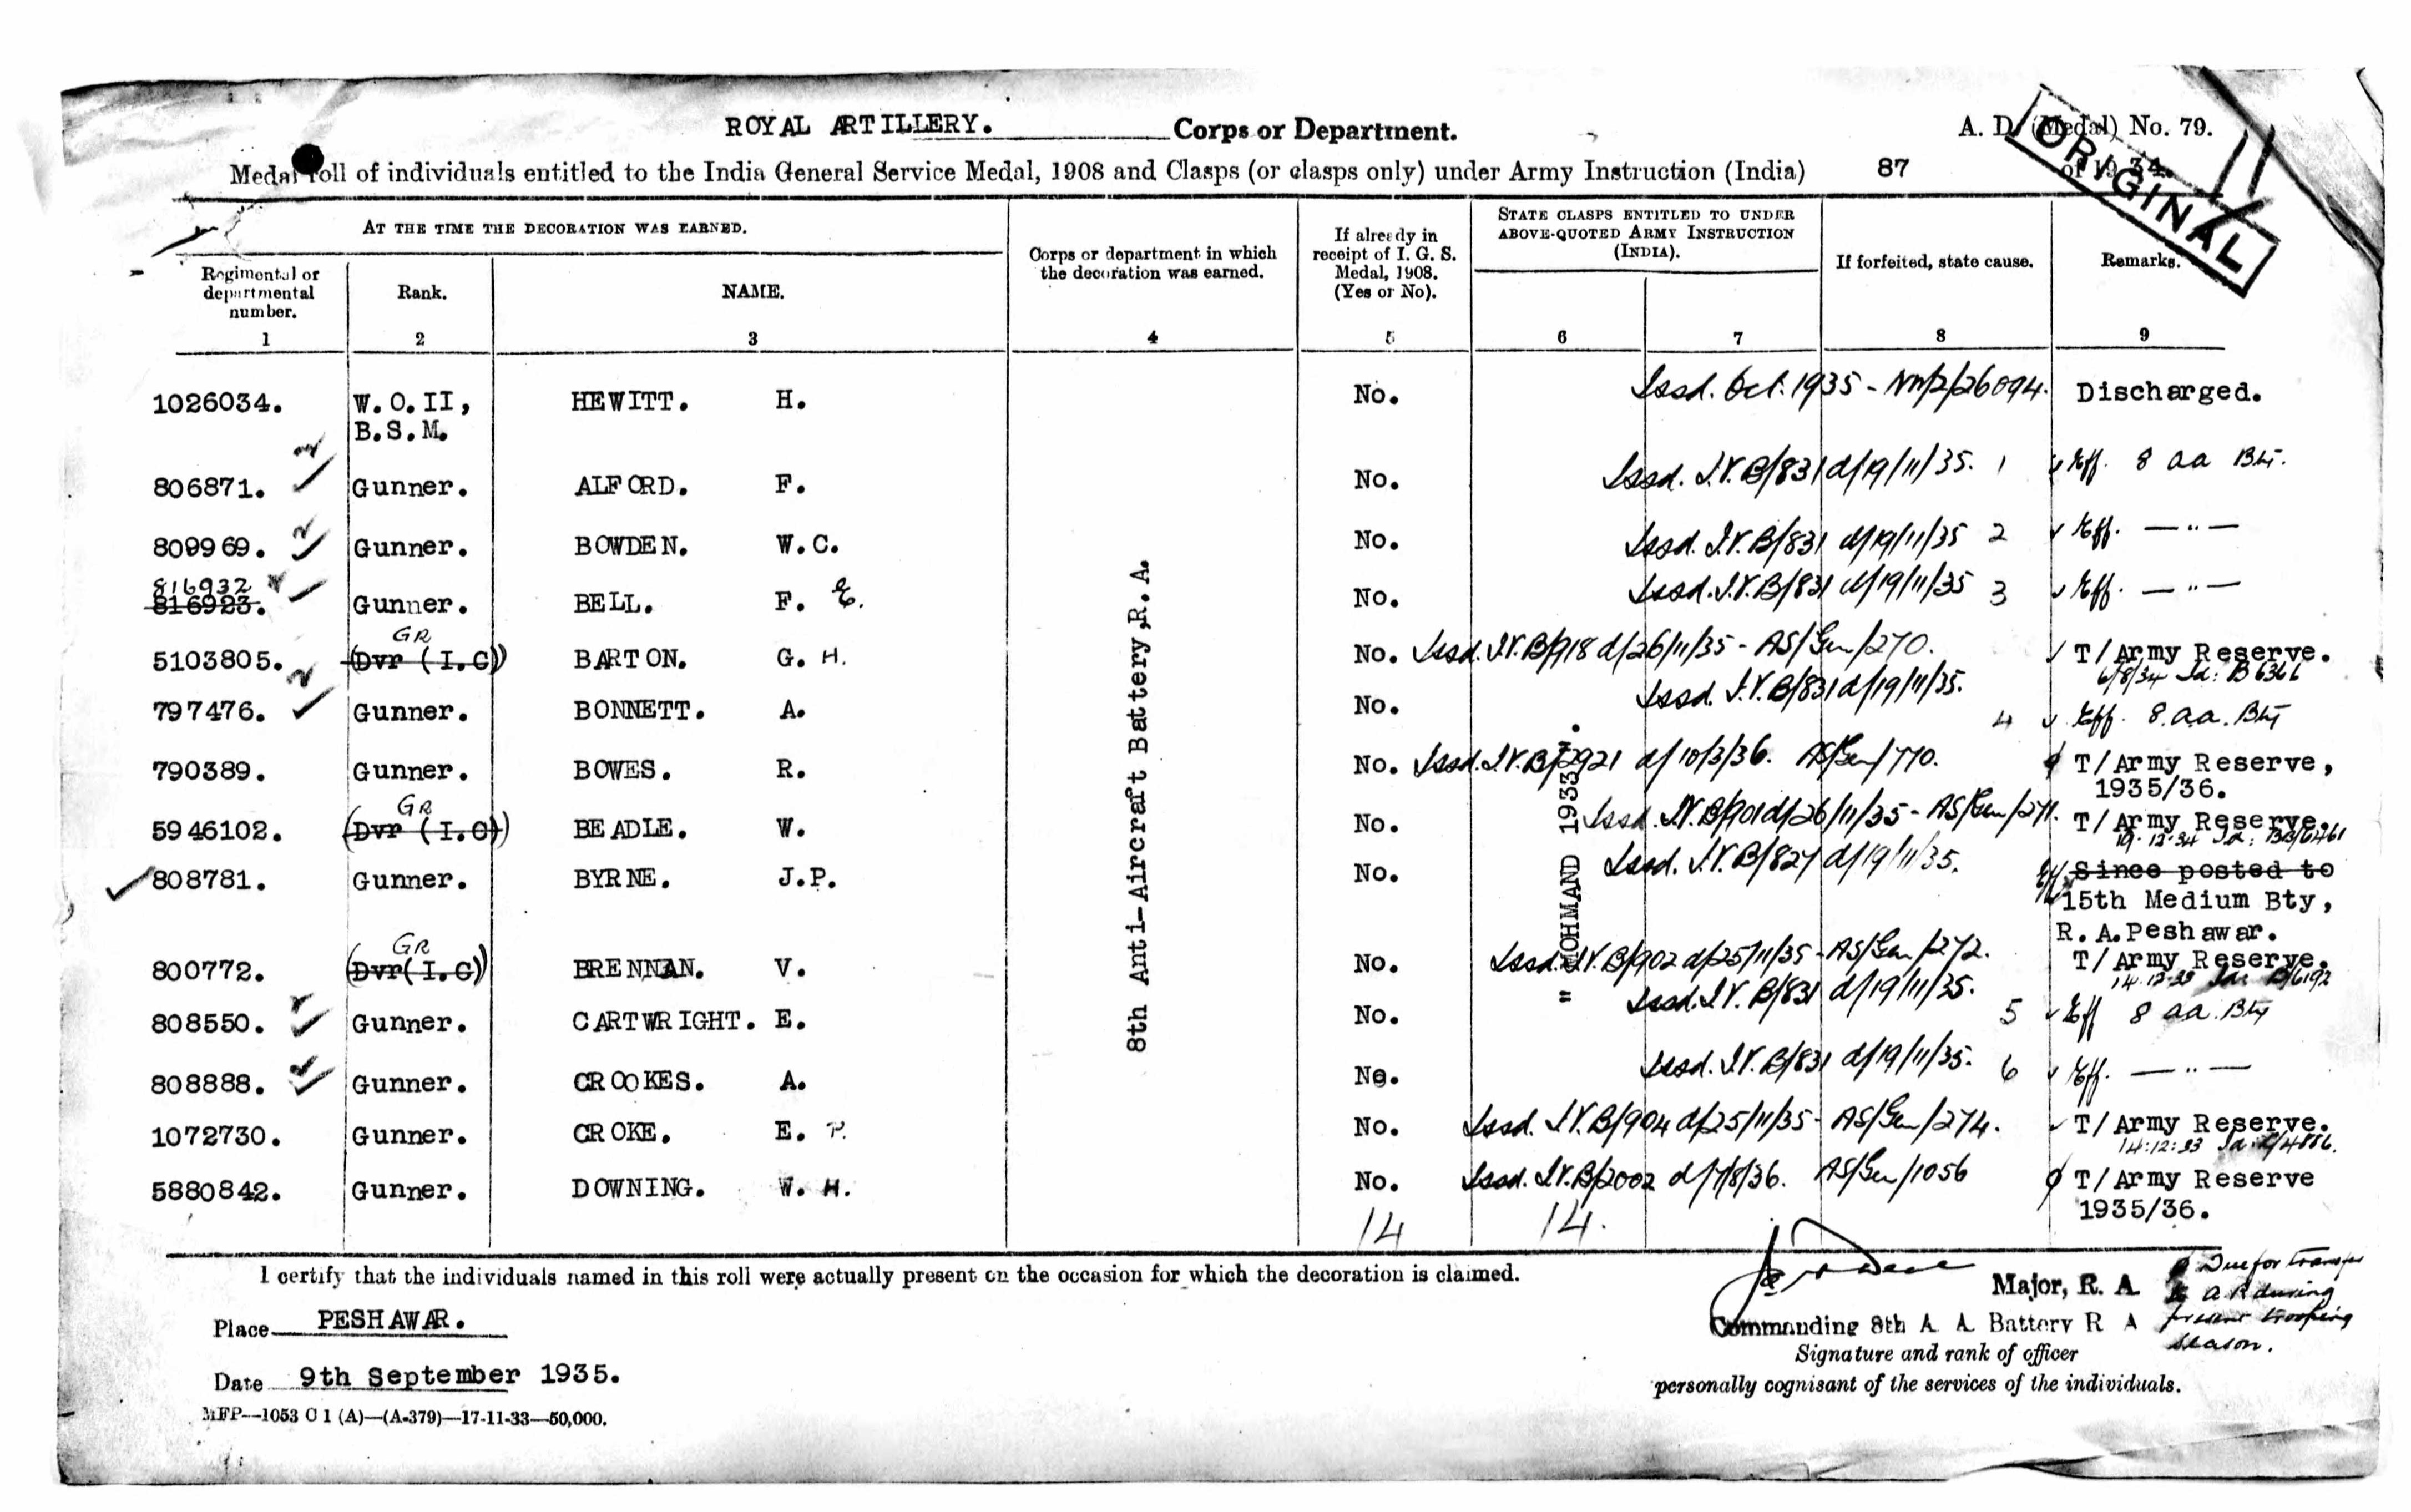 ROYAL ARTILLERY. Corps or Department.
A. D. (Medal) No. 79.
ORIGINAL
11
Medal roll of individuals entitled to the India General Service Medal, 1908 and Clasps (or clasps only) under Army Instruction (India) 87 of 1934.
AT THE TIME THE DECORATION WAS EARNED.
Regimental or departmental number.
Rank.
NAME.
Corps or department in which the decoration was earned.
If already in receipt of I. G. S. Medal, 1908. (Yes or No).
STATE CLASPS ENTITLED TO UNDER ABOVE-QUOTED ARMY INSTRUCTION (INDIA).
If forfeited, state cause.
Remarks.
1 2 3 4 5 6 7 8 9
8th Anti-Aircraft Battery, R. A.
" MOHMAND 1933 ".
1026034. W.O.II, HEWITT. H. No. Issd. Oct. 1935 - Discharged.
B.S.M.
806871. Gunner. ALFORD. F. No. Issd. I.V.B/831 d/19/11/35. 1 Eff. 8 aa Bty.
809969. Gunner. BOWDEN. W.C. No. Issd. I.V.B/831 d/19/11/35 2 Eff. — " —
816932
816923. Gunner. BELL. F. E. No. Issd. I.V.B/831 d/19/11/35 3 Eff. — " —
GR
5103805. (Dvr (I.C)) BARTON. G. H. No. Issd. I.V.B/918 d/26/11/35 - AS/Gen/270. T/Army Reserve.
6/8/34 B 6366
797476. Gunner. BONNETT. A. No. Issd. I.V.B/831 d/19/11/35. 4 Eff. 8.a.a. Bty
790389. Gunner. BOWES. R. No. Issd. I.V.B/2921 d/10/3/36. AS/Gen/770. T/Army Reserve,
1935/36.
GR
5946102. (Dvr (I.C)) BEADLE. W. No. Issd. I.V.B/901 d/26/11/35 - AS/Gen/271. T/Army Reserve.
19.12.34
808781. Gunner. BYRNE. J.P. No. Issd. I.V.B/827 d/19/11/35. Eff Since posted to
15th Medium Bty,
R.A.Peshawar.
GR
800772. (Dvr(I.C)) BRENNAN. V. No. Issd. I.V.B/902 d/25/11/35 - AS/Gen/272. T/Army Reserve.
14.12.33 B/6192
808550. Gunner. CARTWRIGHT. E. No. Issd. I.V.B/831 d/19/11/35. 5 Eff 8 aa. Bty
808888. Gunner. CROOKES. A. No. Issd. I.V.B/831 d/19/11/35. 6 Eff. — " —
1072730. Gunner. CROKE. E. P. No. Issd. I.V.B/904 d/25/11/35 - AS/Gen/274. T/Army Reserve.
14:12:33
5880842. Gunner. DOWNING. W. H. No. Issd. I.V.B/2002 d/7/8/36. AS/Gen/1056 T/Army Reserve
1935/36.
14 14.
I certify that the individuals named in this roll were actually present on the occasion for which the decoration is claimed.
Place PESHAWAR.
Date 9th September 1935.
MFP—1053 C 1 (A)—(A-379)—17-11-33—50,000.
Major, R. A.
Commanding 8th A. A. Battery R A
Signature and rank of officer
personally cognisant of the services of the individuals.
Due for transfer
to A R during
present trooping
season.